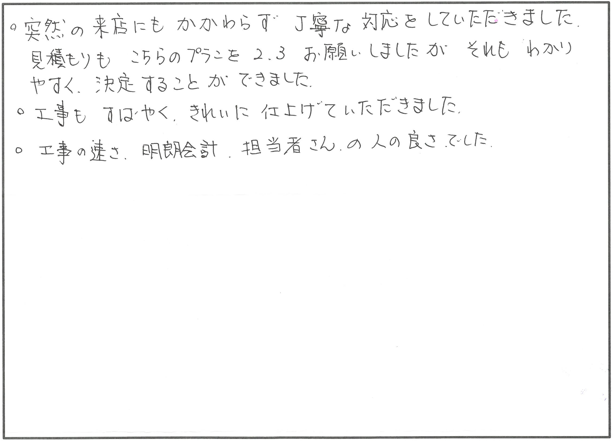 ○ 突然の来店にもかかわらず 丁寧な対応をしていただきました.
見積もりも こちらのプランを 2.3 お願いしましたが それも わかり
やすく. 決定することができました.
○ 工事も すばやく. きれいに 仕上げていただきました.
○ 工事の速さ. 明朗会計. 担当者さん.の人の良さ.でした.